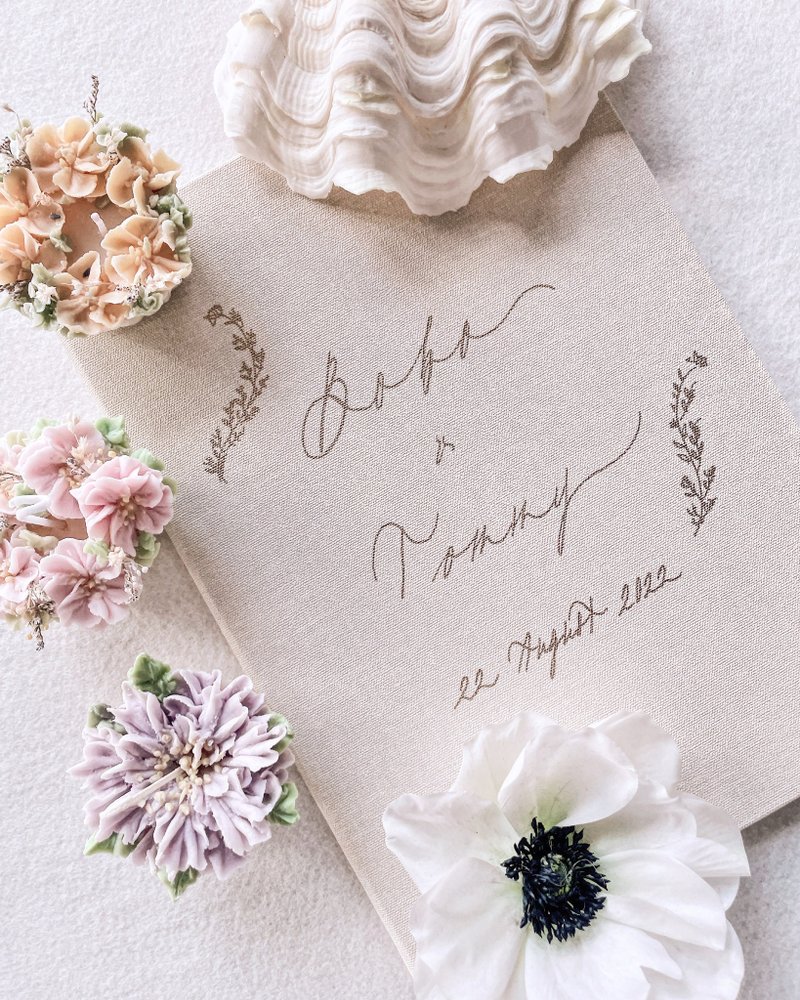 Bobo
&
Tommy
22 August 2022